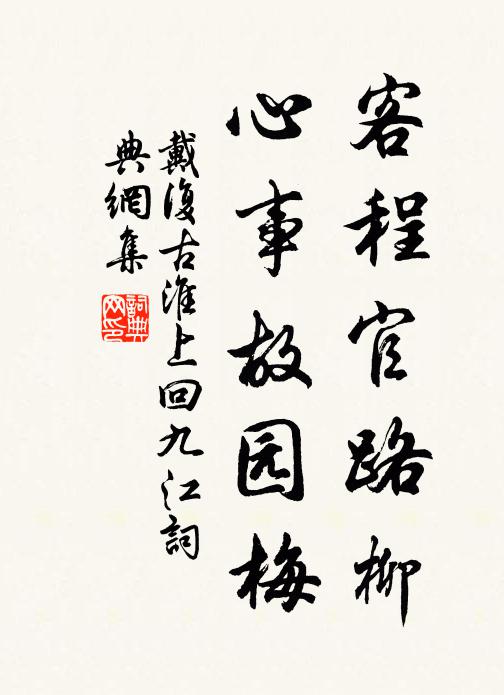 客程官路柳
心事故园梅
戴復古淮上回九江詞
典網集
詞典
网印